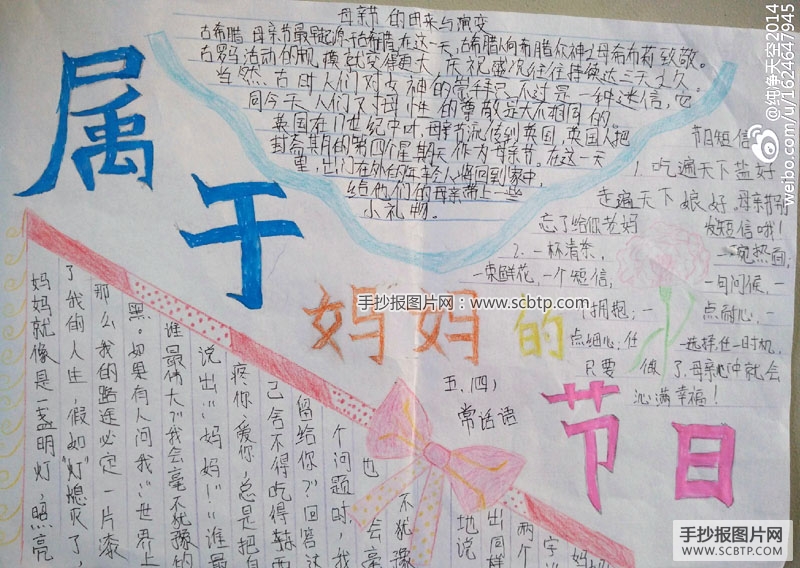 母亲节的由来与演变
古希腊 母亲节最早起源于古希腊,在这一天,古希腊人向希腊众神之母希布莉致敬。
古罗马活动的规模就变得更大,庆祝盛况往往持续达三天之久。
当然,古时人们对女神的崇拜只不过是一种迷信,它
同今天人们对母性的尊敬是大不相同的。
英国在17世纪中叶,母亲节流传到英国,英国人把
封斋期的第四个星期天作为母亲节。在这一天
里,出门在外的年轻人将回到家中,
给他们的母亲带上一些
小礼物。
属于
妈妈的
节日
节日短信
1.吃遍天下盐好
走遍天下娘好。母亲节别
忘了给你老妈 发短信哦!
2.一杯清茶, 一碗热面,
一束鲜花,一个短信, 一句问候,一
个拥抱;一 点耐心,一
点细心;任 一选择任一时机,
只要 做了,母亲心中就会
沁满幸福!
五.(四)
常话语
妈妈就像是一盏明灯,照亮
了我的人生,假如“灯”熄灭了,
那么我的路途必定一片漆
黑。如果有人问我:“世界上
谁最伟大?”我会毫不犹豫的
说出:“妈妈!”“谁最
疼你、爱你,总是把自
己舍不得吃得东西
留给你?”回答这
个问题时,我
也会毫
不犹豫
地说出同样
两个字
妈妈
手抄报图片网:www.scbtp.com
手抄报图片网
WWW.SCBTP.COM
@纯净天空2014
weibo.com/u/1624647945